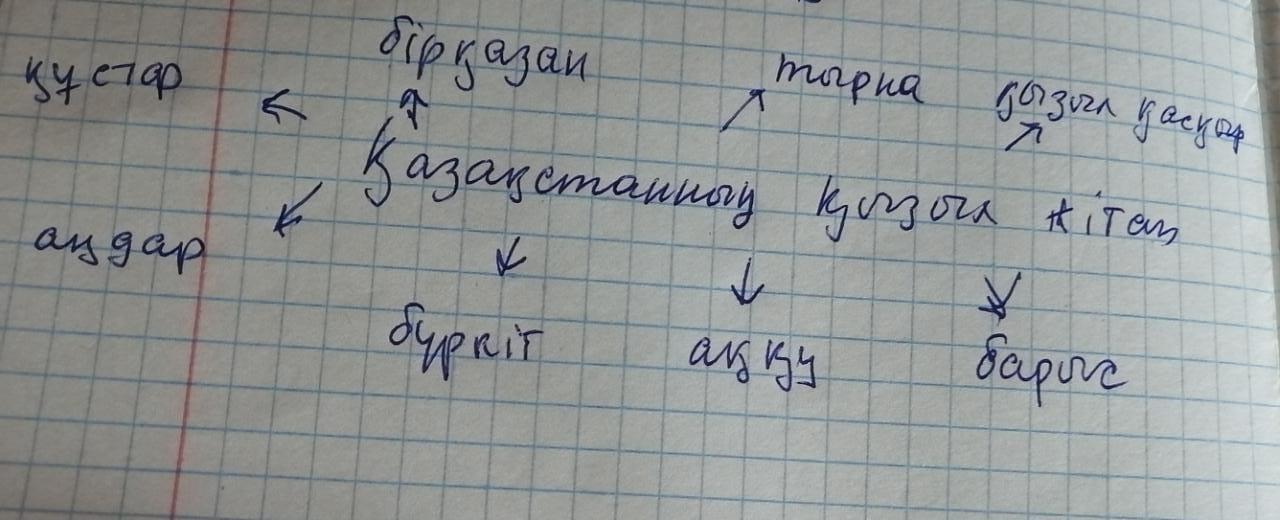 бірқазан
құстар
тырна
қызыл қасқыр
Қазақстанның қызыл кітап
аңдар
бүркіт
аққу
барыс